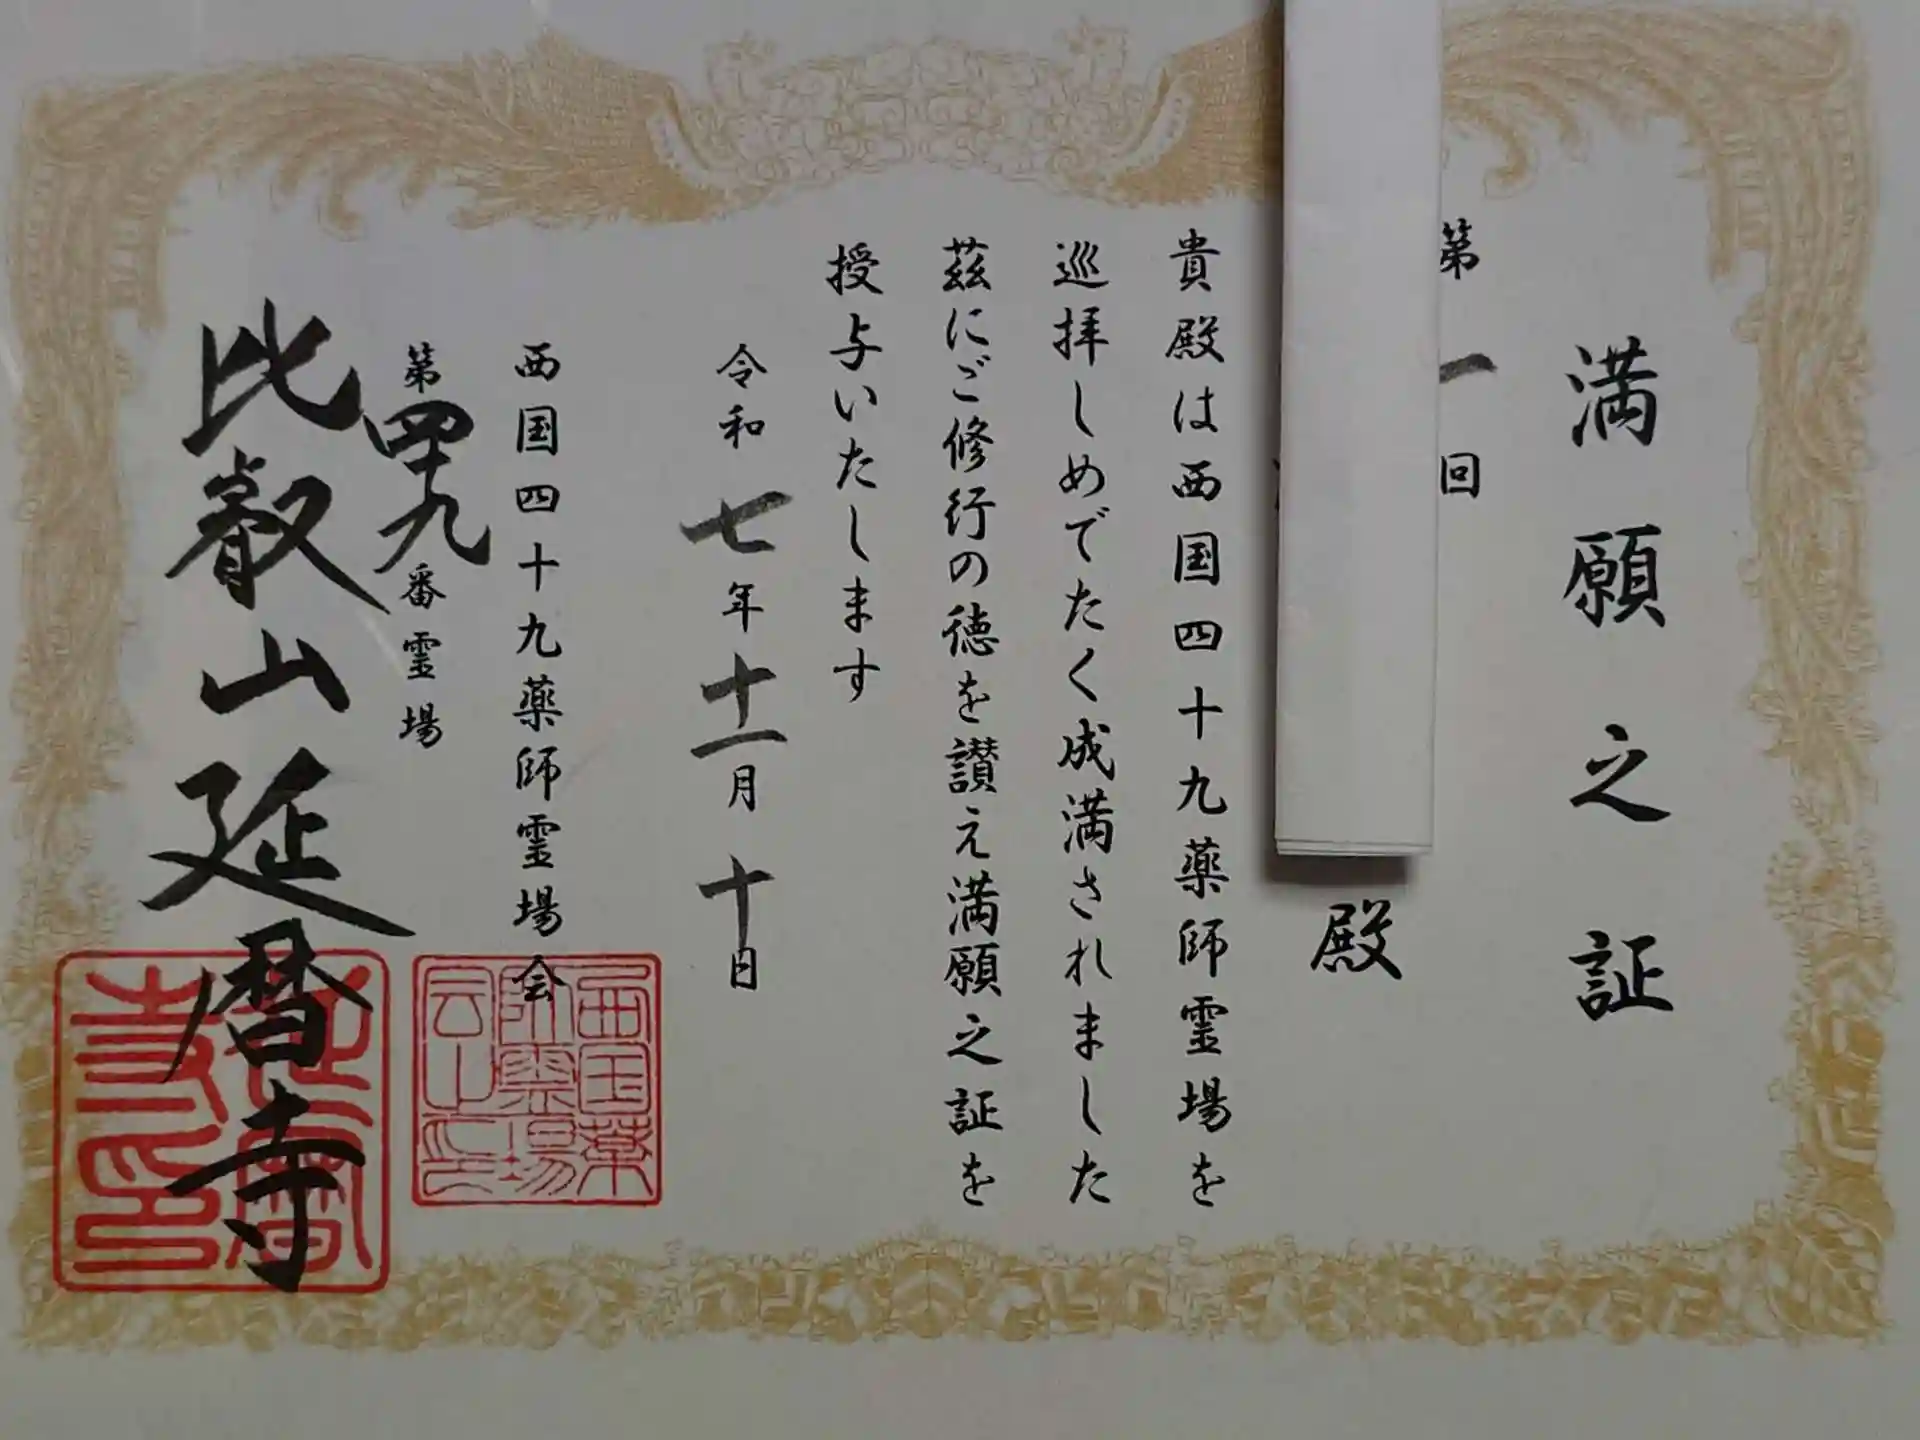 満願之証
第一回
殿
貴殿は西国四十九薬師霊場を
巡拝しめでたく成満されました
茲にご修行の徳を讃え満願之証を
授与いたします
令和七年十一月十日
西国四十九薬師霊場会
第四十九番霊場
比叡山延暦寺
西国薬
師霊場
会之印
延暦
寺印